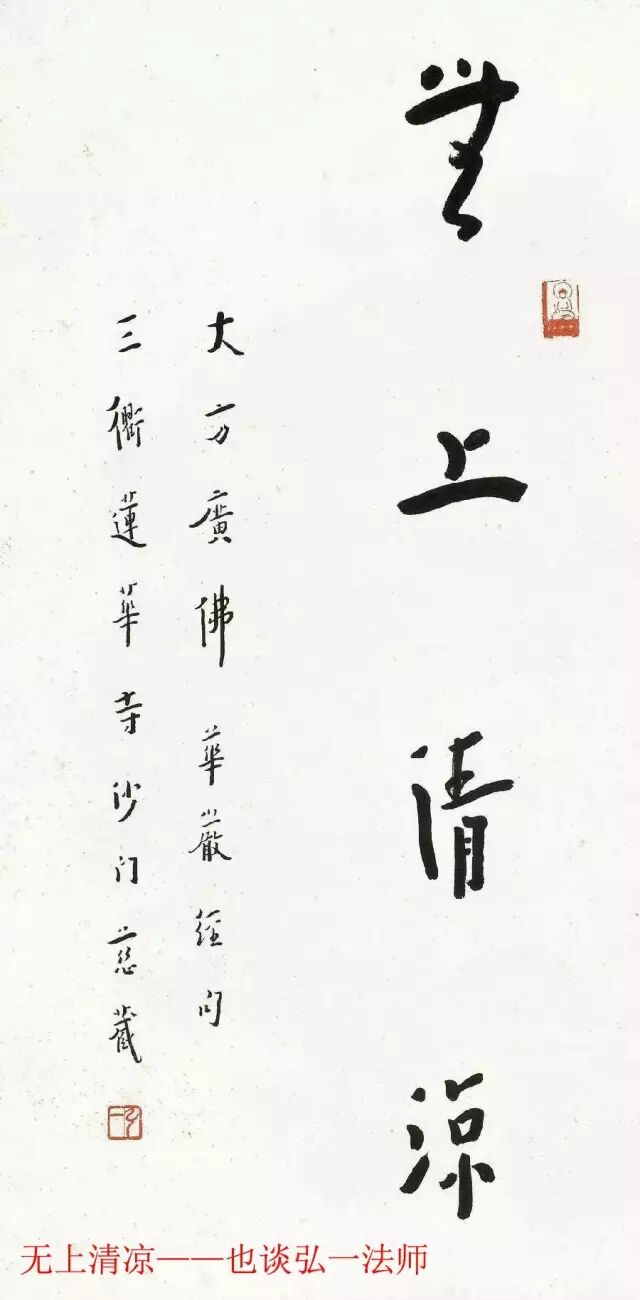 無上清涼
大方廣佛華嚴經句
三衢蓮華寺沙门慈藏
弘一
无上清凉——也谈弘一法师